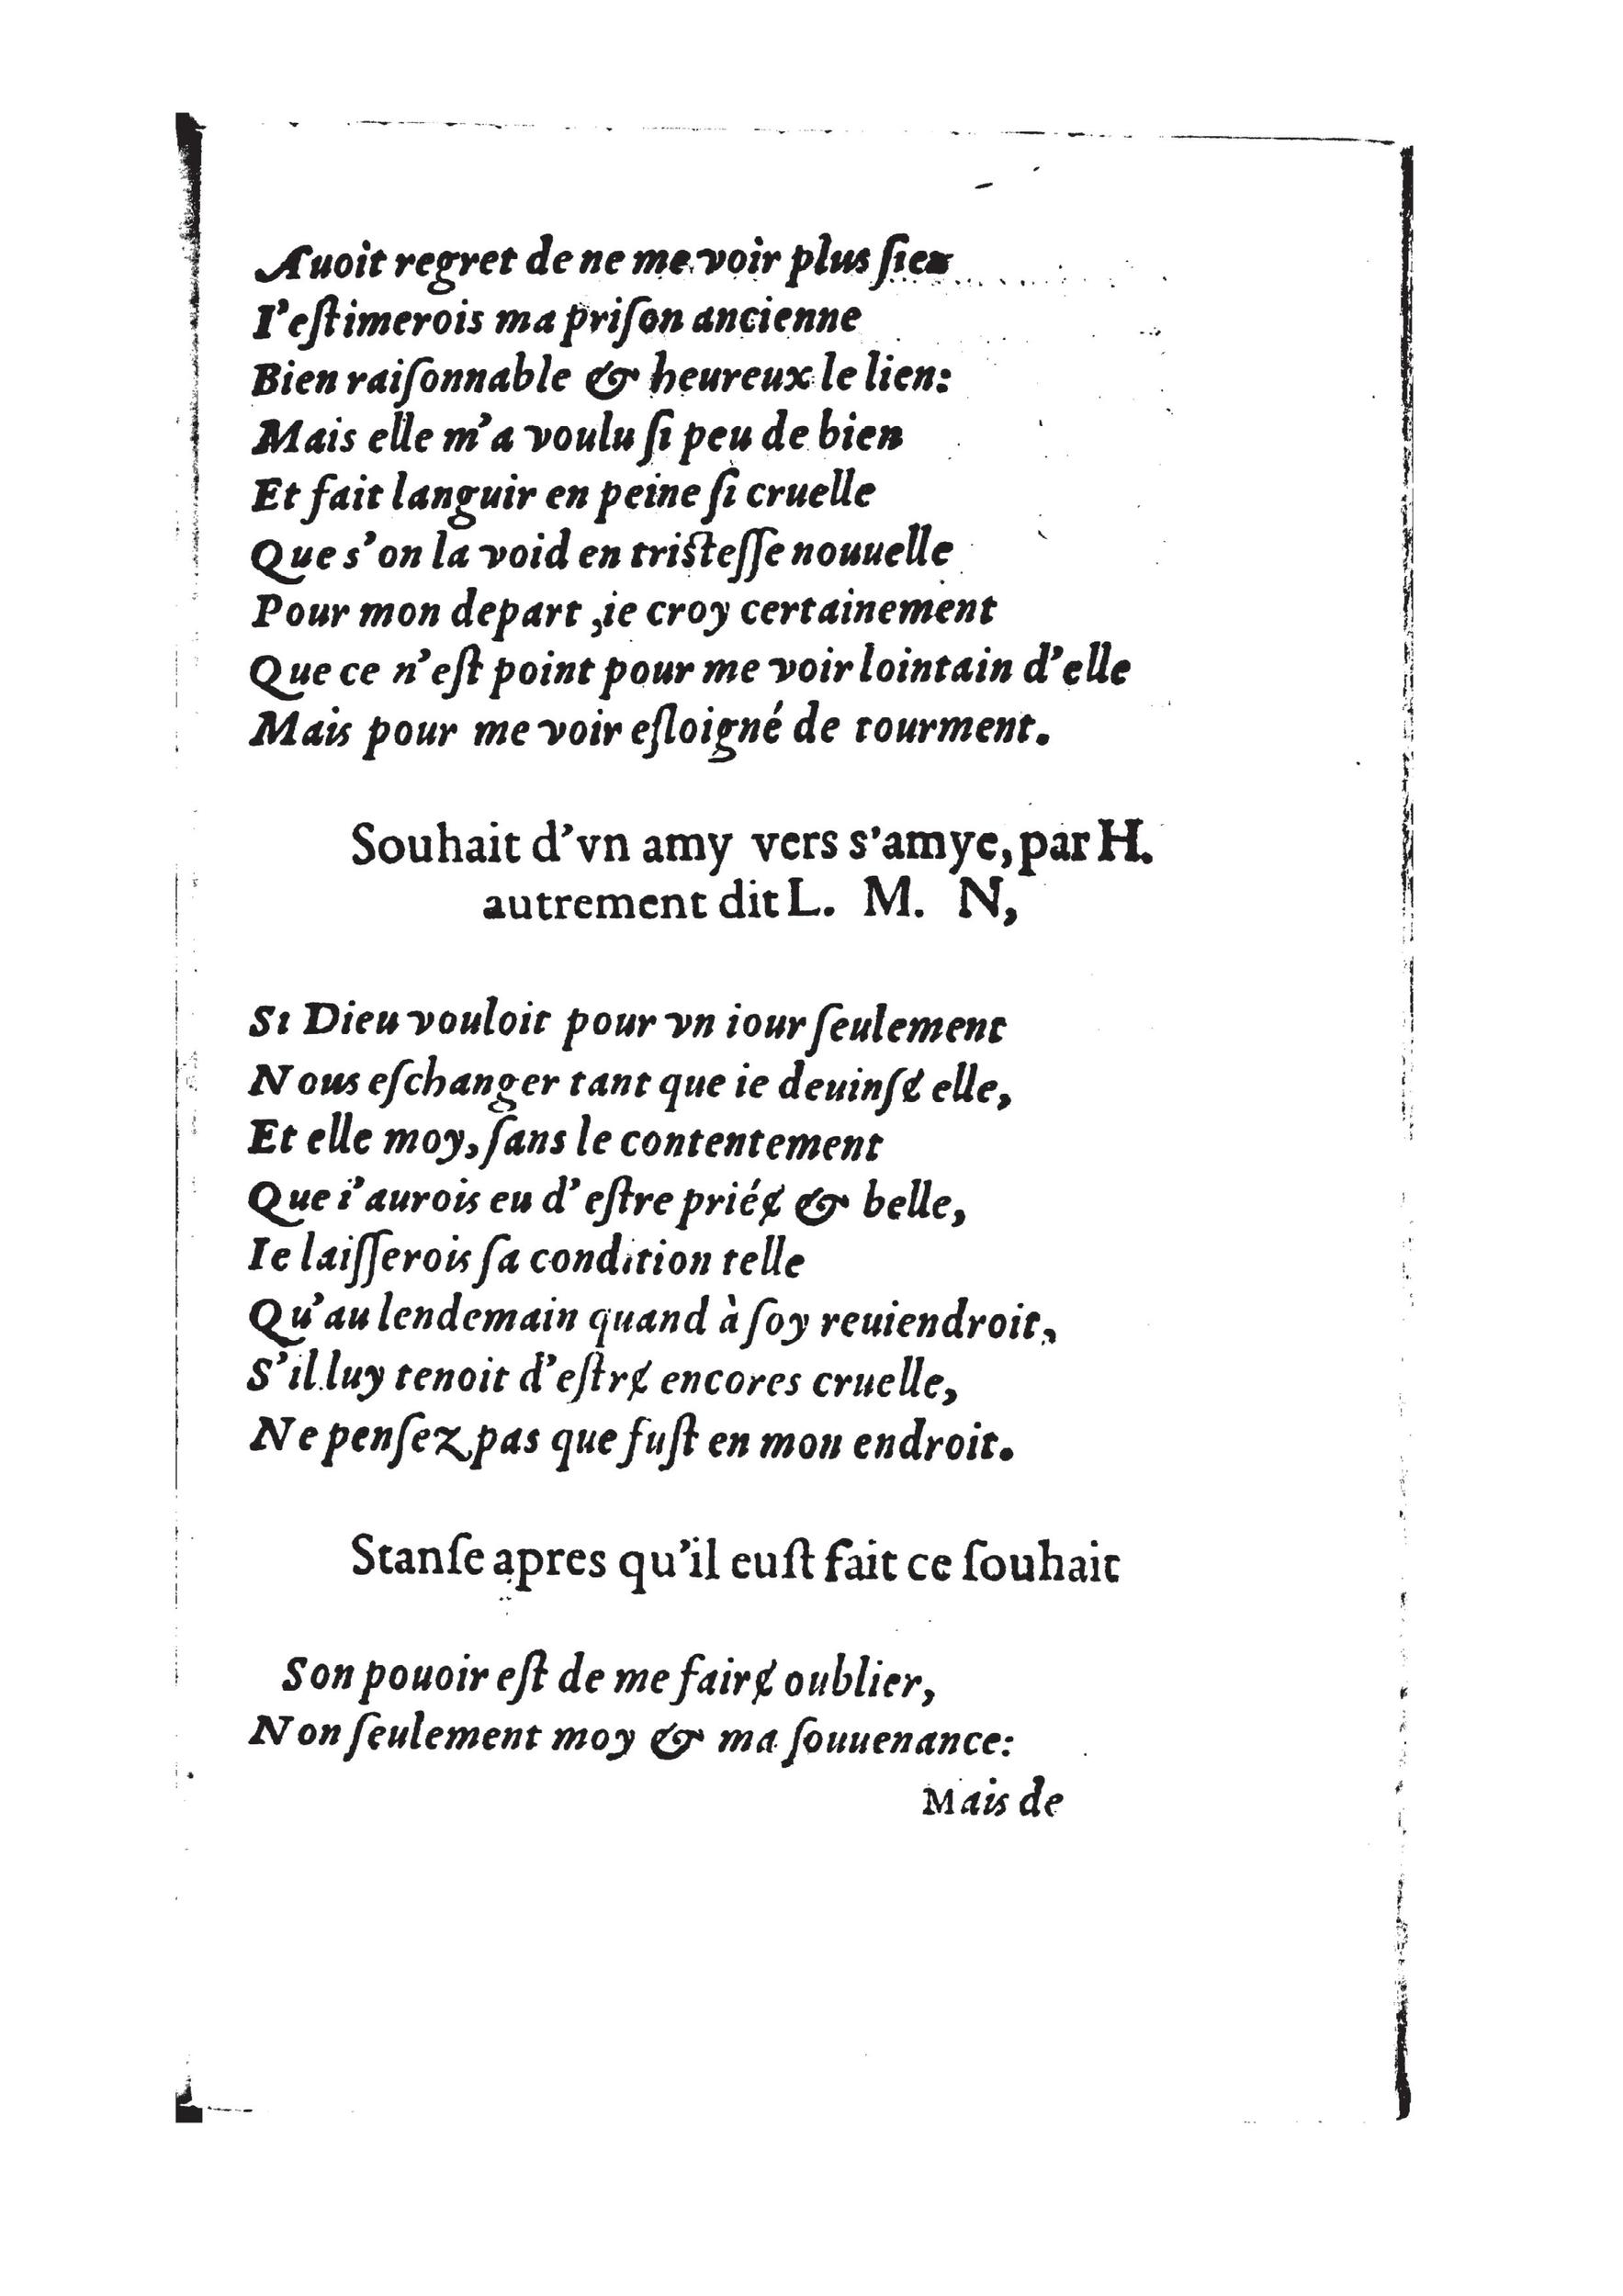 Auoit regret de ne me voir plus ſien
I'eſtimerois ma priſon ancienne
Bien raiſonnable & heureux le lien:
Mais elle m'a voulu ſi peu de bien
Et fait languir en peine ſi cruelle
Que s'on la void en triſteſſe nouuelle
Pour mon depart ,ie croy certainement
Que ce n'eſt point pour me voir lointain d'elle
Mais pour me voir eſloigné de tourment.
Souhait d'vn amy vers s'amye, par H.
autrement dit L. M. N,
Si Dieu vouloit pour vn iour ſeulement
Nous eſchanger tant que ie deuinſɇ elle,
Et elle moy, ſans le contentement
Que i'aurois eu d'eſtre priéɇ & belle,
Ie laiſſerois ſa condition telle
Qu'au lendemain quand à ſoy reuiendroit,
S'il luy tenoit d'eſtrɇ encores cruelle,
Ne penſez pas que fuſt en mon endroit.
Stanſe apres qu'il euſt fait ce ſouhait
Son pouoir eſt de me fairɇ oublier,
Non ſeulement moy & ma ſouuenance:
Mais de